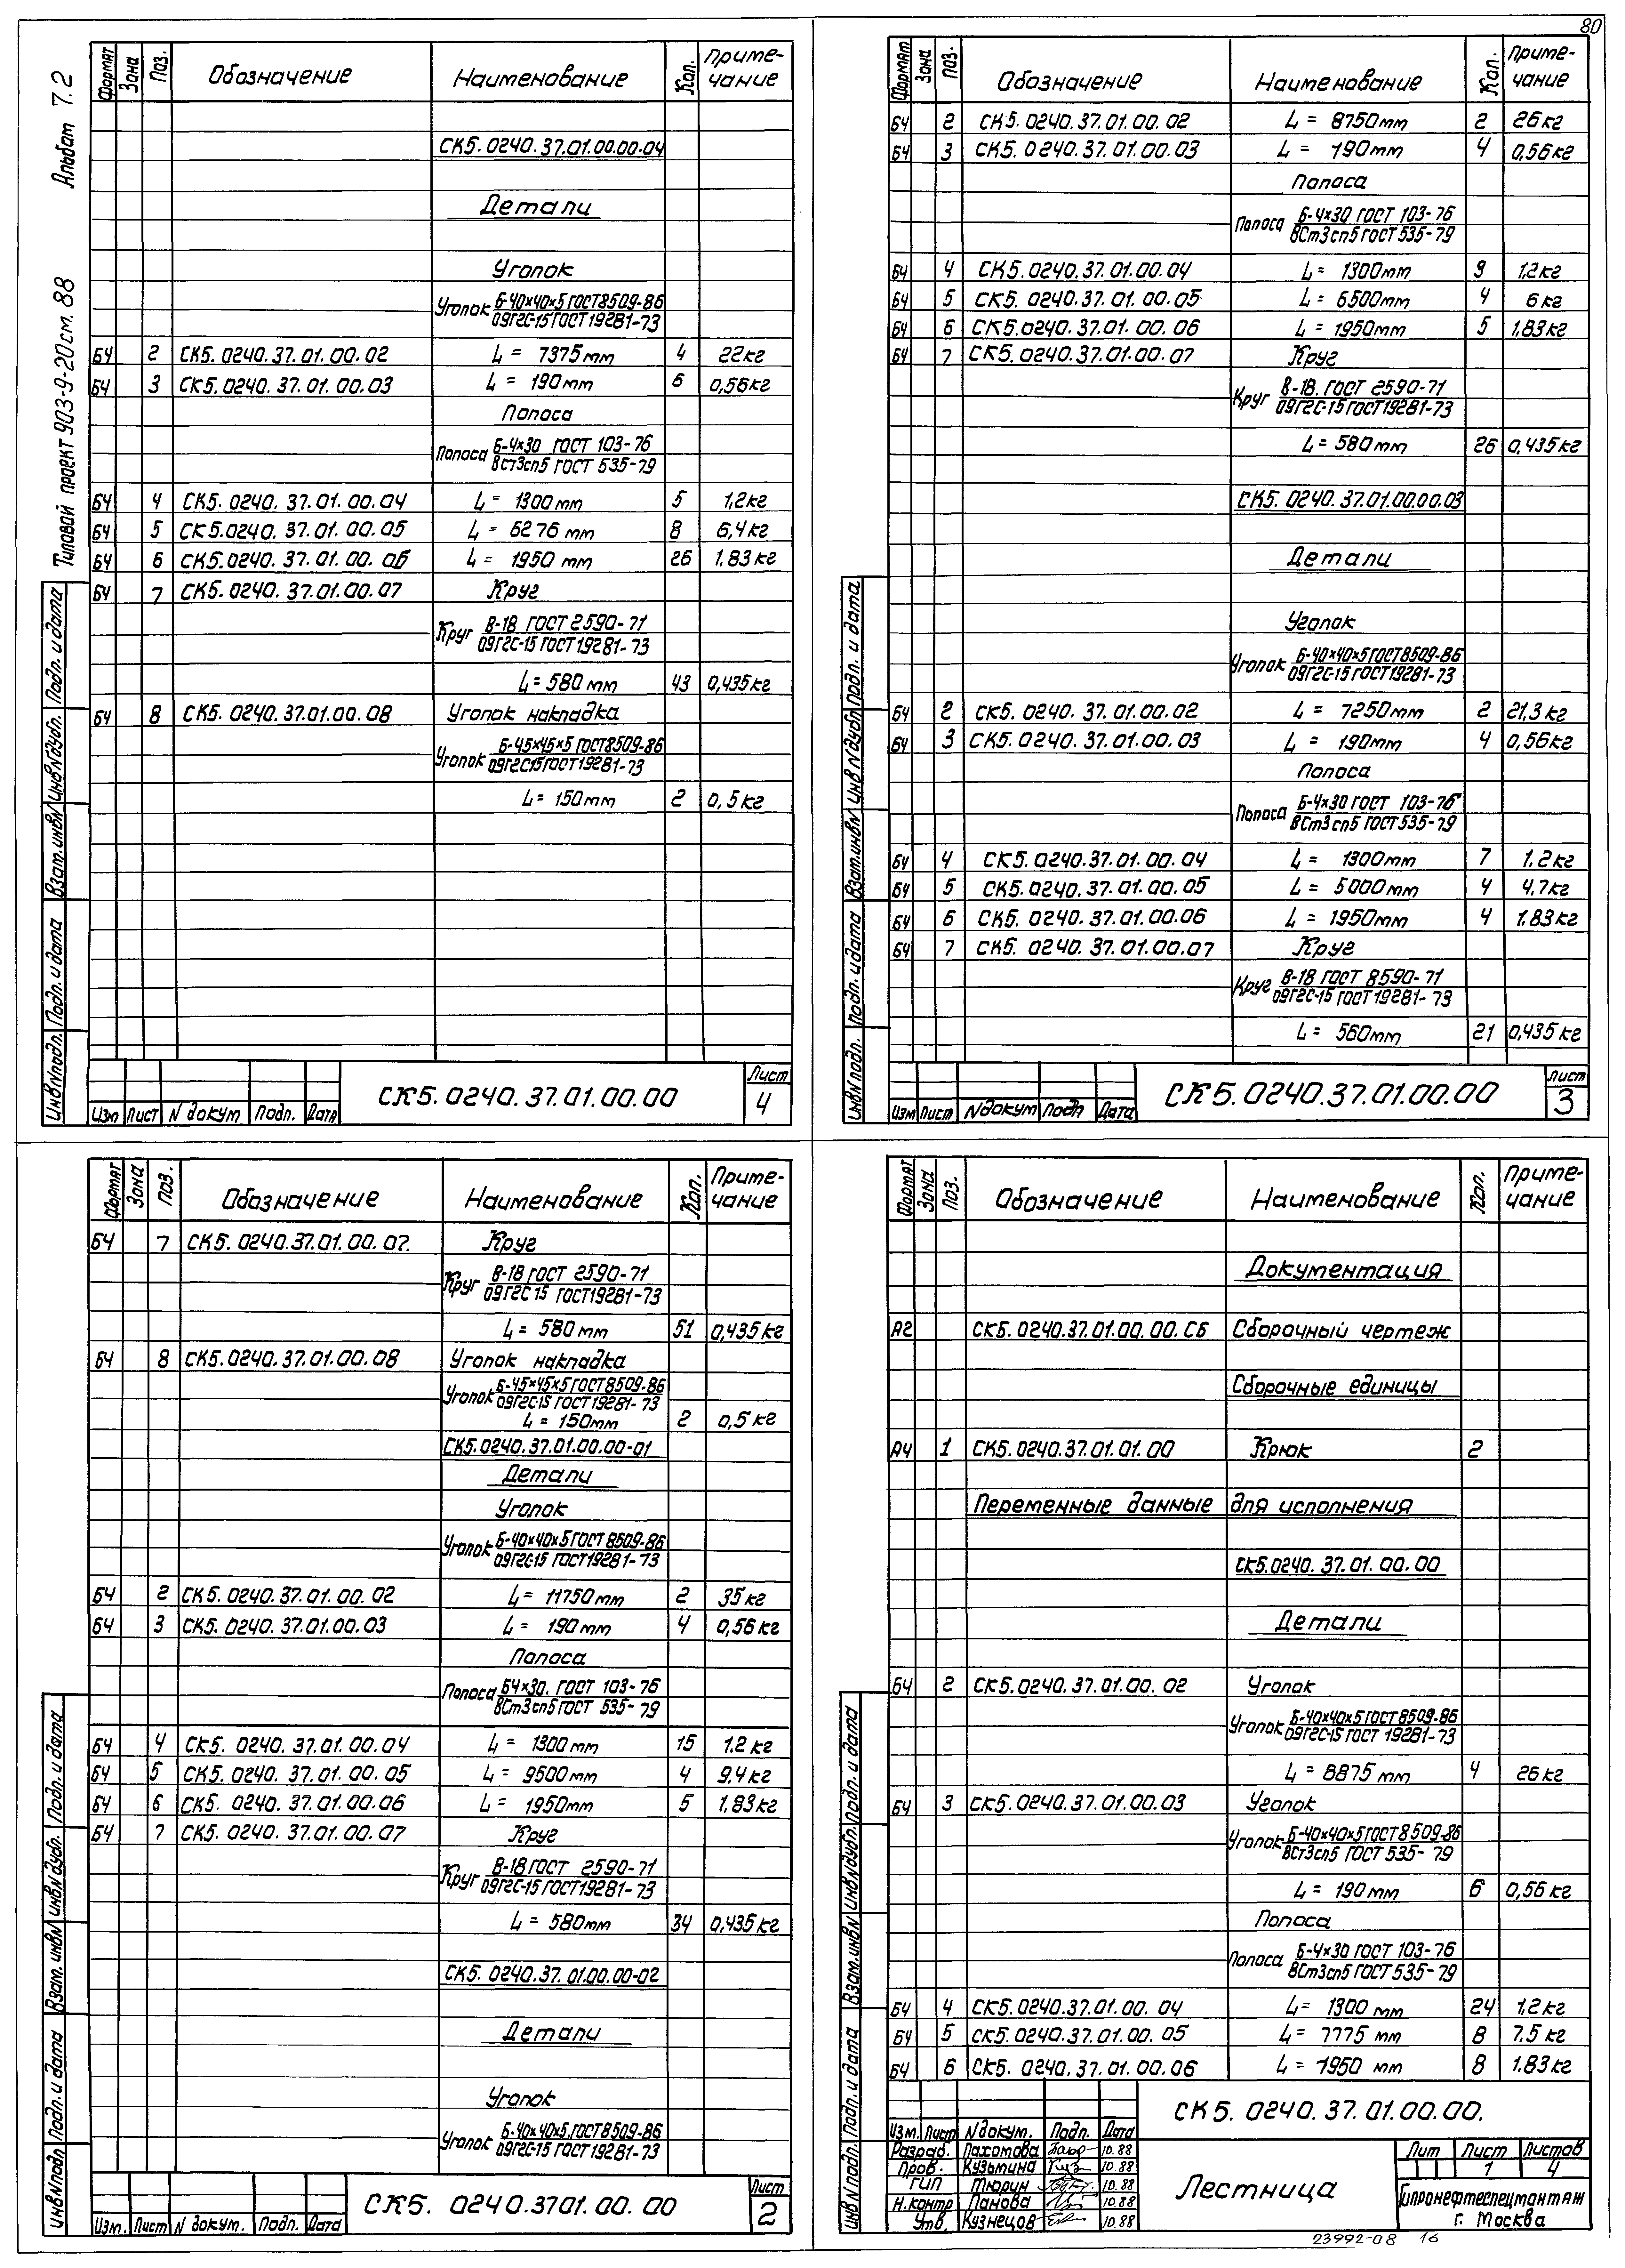 80
Альбом 7.2
Типовой проект 903-9-20см. 88
Формат Зона Поз. Обозначение Наименование Кол. Приме-чание
СК5.0240.37.01.00.00-04
Детали
Уголок
Уголок Б-40х40х5 ГОСТ8509-86
09Г2С-15 ГОСТ19281-73
БЧ 2 СК5.0240.37.01.00.02 L = 7375мм 4 22кг
БЧ 3 СК5.0240.37.01.00.03 L = 190мм 6 0,56кг
Полоса
Полоса Б-4х30 ГОСТ 103-76
ВСт3сп5 ГОСТ 535-79
БЧ 4 СК5.0240.37.01.00.04 L = 1300мм 5 1,2кг
БЧ 5 СК5.0240.37.01.00.05 L = 6276мм 8 6,4кг
БЧ 6 СК5.0240.37.01.00.06 L = 1950мм 26 1.83кг
БЧ 7 СК5.0240.37.01.00.07 Круг
Круг В-18 ГОСТ 2590-71
09Г2С-15 ГОСТ19281-73
L = 580мм 43 0,435кг
БЧ 8 СК5.0240.37.01.00.08 Уголок накладка
Уголок Б-45х45х5 ГОСТ8509-86
09Г2С15 ГОСТ19281-73
L = 150мм 2 0,5кг
Инв№подл. Подп. и дата Взам.инв№ Инв№дубл. Подп. и дата
Изм Лист N докум Подп. Дата
СК5.0240.37.01.00.00
Лист
4
Формат Зона Поз. Обозначение Наименование Кол. Приме-чание
БЧ 2 СК5.0240.37.01.00.02 L = 8750мм 2 26кг
БЧ 3 СК5.0240.37.01.00.03 L = 190мм 4 0,56кг
Полоса
Полоса Б-4х30 ГОСТ 103-76
ВСт3сп5 ГОСТ 535-79
БЧ 4 СК5.0240.37.01.00.04 L = 1300мм 9 1,2кг
БЧ 5 СК5.0240.37.01.00.05 L = 6500мм 4 6кг
БЧ 6 СК5.0240.37.01.00.06 L = 1950мм 5 1.83кг
БЧ 7 СК5.0240.37.01.00.07 Круг
Круг В-18. ГОСТ 2590-71
09Г2С-15 ГОСТ19281-73
L = 580мм 26 0,435кг
СК5.0240.37.01.00.00.03
Детали
Уголок
Уголок Б-40х40х5 ГОСТ8509-86
09Г2С-15 ГОСТ19281-73
БЧ 2 СК5.0240.37.01.00.02 L = 7250мм 2 21,3кг
БЧ 3 СК5.0240.37.01.00.03 L = 190мм 4 0,56кг
Полоса
Полоса Б-4х30 ГОСТ 103-76
ВСт3сп5 ГОСТ 535-79
БЧ 4 СК5.0240.37.01.00.04 L = 1300мм 7 1.2кг
БЧ 5 СК5.0240.37.01.00.05 L = 5000мм 4 4,7кг
БЧ 6 СК5.0240.37.01.00.06 L = 1950мм 4 1.83кг
БЧ 7 СК5.0240.37.01.00.07 Круг
Круг В-18 ГОСТ 8590-71
09Г2С-15 ГОСТ19281-73
L = 560мм 21 0,435кг
Инв№подл. Подп. и дата Взам.инв№ Инв№дубл Подп. и дата
Изм Лист Nдокум Подп Дата
СК5.0240.37.01.00.00
Лист
3
Формат Зона Поз. Обозначение Наименование Кол. Приме-чание
БЧ 7 СК5.0240.37.01.00.07. Круг
Круг В-18 ГОСТ 2590-71
09Г2С 15 ГОСТ19281-73
L = 580мм 51 0,435кг
БЧ 8 СК5.0240.37.01.00.08 Уголок накладка
Уголок Б-45х45х5 ГОСТ8509-86
09Г2С15 ГОСТ19281-73
L = 150мм 2 0,5кг
СК5.0240.37.01.00.00-01
Детали
Уголок
Уголок Б-40х40х5 ГОСТ 8509-86
09Г2С-15 ГОСТ19281-73
БЧ 2 СК5.0240.37.01.00.02 L = 11750мм 2 35кг
БЧ 3 СК5.0240.37.01.00.03 L = 190мм 4 0,56кг
Полоса
Полоса Б4х30. ГОСТ 103-76
ВСт3сп5 ГОСТ 535-79
БЧ 4 СК5.0240.37.01.00.04 L = 1300мм 15 1.2кг
БЧ 5 СК5.0240.37.01.00.05 L = 9500мм 4 9,4кг
БЧ 6 СК5.0240.37.01.00.06 L = 1950мм 5 1,83кг
БЧ 7 СК5.0240.37.01.00.07 Круг
Круг В-18 ГОСТ 2590-71
09Г2С-15 ГОСТ19281-73
L = 580мм 34 0,435кг
СК5.0240.37.01.00.00-02
Детали
Уголок
Уголок Б-40х40х5 ГОСТ8509-86
09Г2С-15 ГОСТ19281-73
Инв№подл Подп. и дата Взам. инв№ Инв№дубл. Подп. и дата
Изм. Лист N докум. Подп. Дата
СК5. 0240.3701.00.00
Лист
2
Формат Зона Поз. Обозначение Наименование Кол. Приме-чание
Документация
А2 СК5.0240.37.01.00.00.СБ Сборочный чертеж
Сборочные единицы
А4 1 СК5.0240.37.01.01.00 Крюк 2
Переменные данные для исполнения
СК5.0240.37.01.00.00
Детали
БЧ 2 СК5.0240.37.01.00.02 Уголок
Уголок Б-40х40х5 ГОСТ8509-86
09Г2С-15 ГОСТ 19281-73
L = 8875мм 4 26кг
БЧ 3 СК5.0240.37.01.00.03 Уголок
Уголок Б-40х40х5 ГОСТ8509-86
ВСт3сп5 ГОСТ 535-79
L = 190мм 6 0,56кг
Полоса
Полоса Б-4х30 ГОСТ 103-76
ВСт3сп5 ГОСТ535-79
БЧ 4 СК5.0240.37.01.00.04 L = 1300мм 24 1.2кг
БЧ 5 СК5.0240.37.01.00.05 L = 7775мм 8 7,5кг
БЧ 6 СК5.0240.37.01.00.06 L = 1950мм 8 1.83кг
Инв№подл. Подп. и дата Взам.инв№ Инв№дубл. Подп. и дата
СК5.0240.37.01.00.00.
Изм. Лист Nдокум. Подп. Дата
Разраб. Пахомова 10.88
Пров. Кузьмина 10.88
ГИП Тюрин 10.88
Н.контр Панова 10.88
Утв. Кузнецов 10.88
Лестница
Лит Лист Листов
1 4
Гипронефтеспецмонтаж
г. Москва
23992-08 16